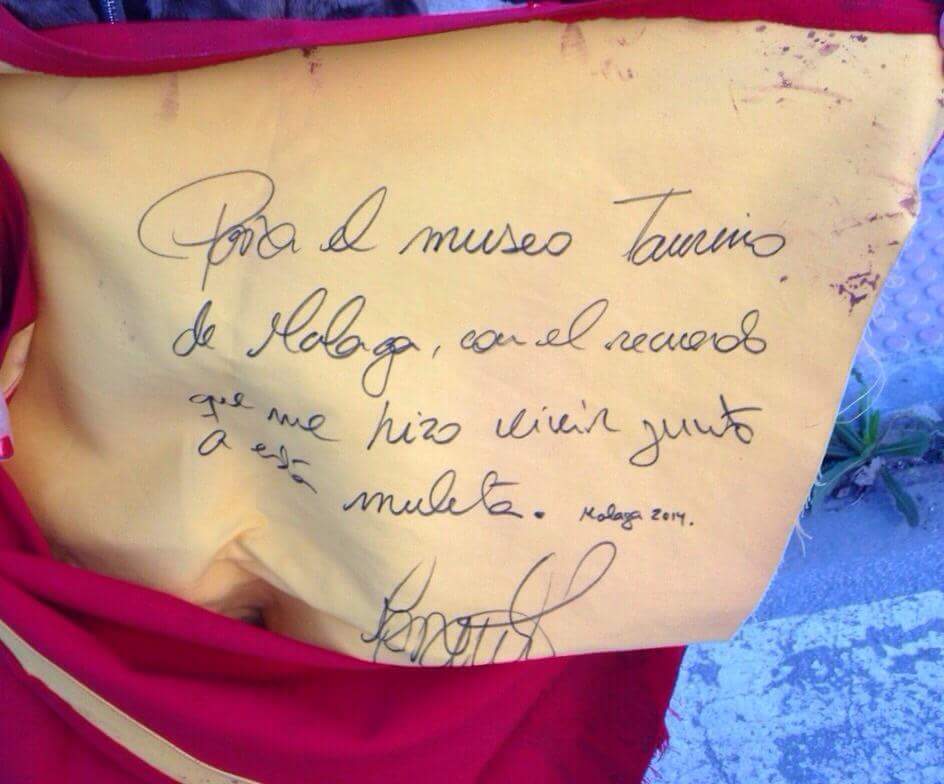 Para el museo Taurino
de Malaga, con el recuerdo
que me hizo vivir junto
a esta muleta. Malaga 2014.